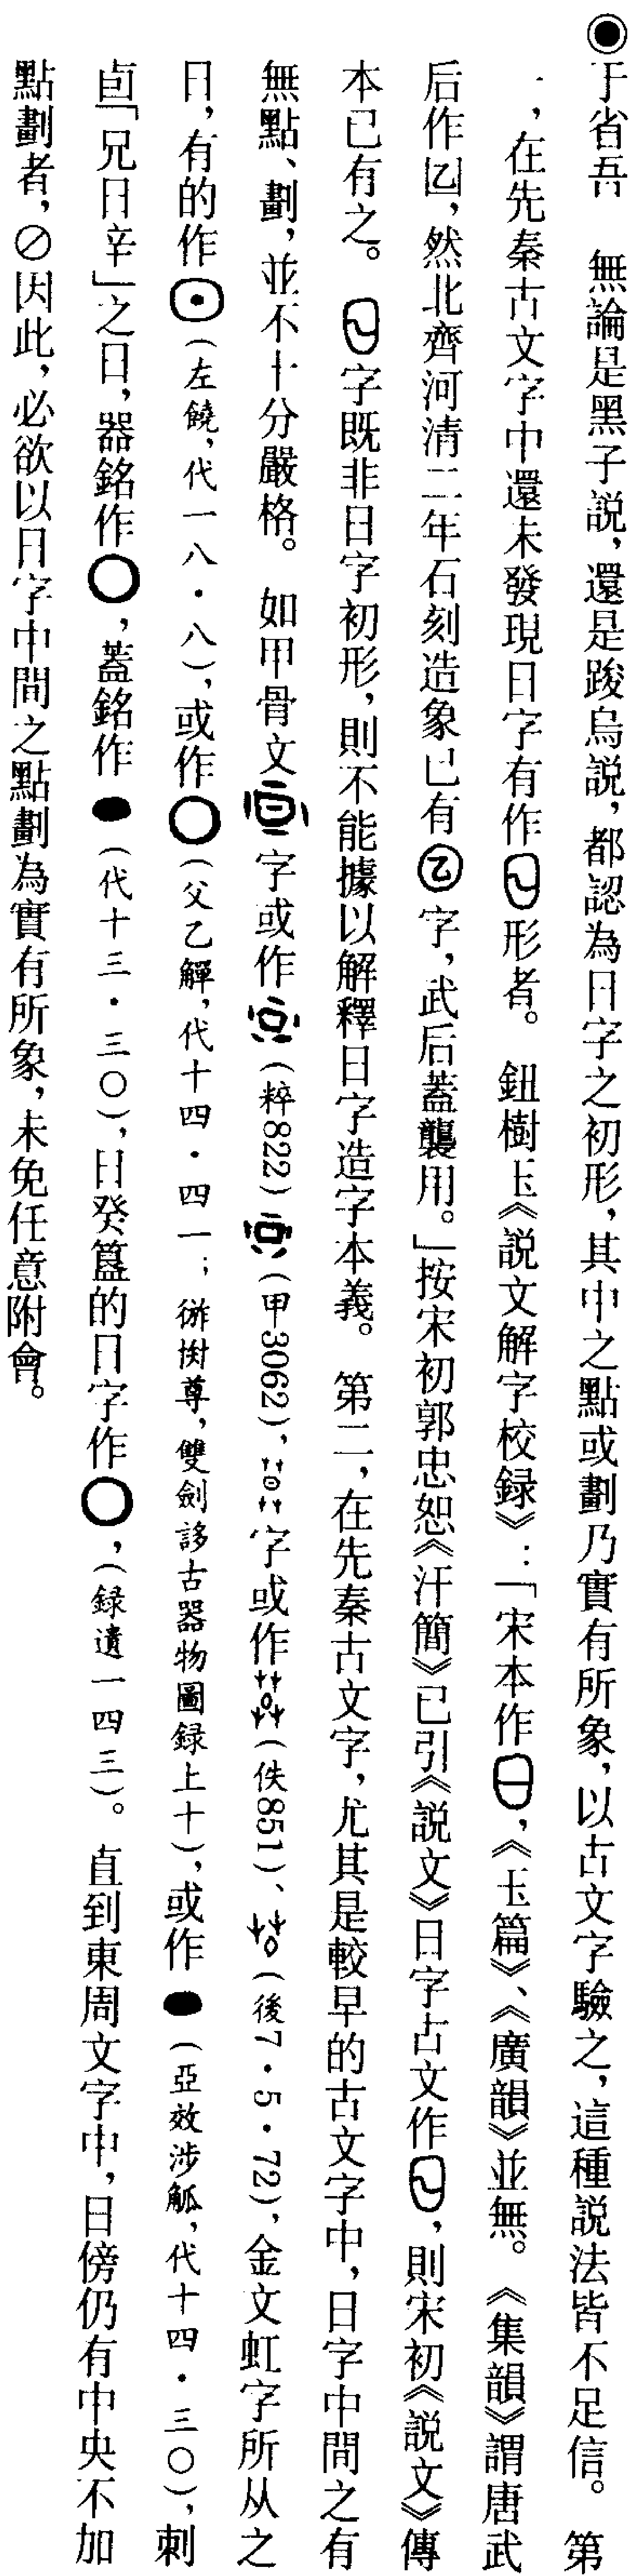 ◉于省吾　無論是黑子説，還是踆烏説，都認為日字之初形，其中之點或劃乃實有所象，以古文字驗之，這種説法皆不足信。　第
一，在先秦古文字中還未發現日字有作形者。　鈕樹玉《説文解字校録》：「宋本作，《玉篇》、《廣韻》並無。　《集韻》謂唐武
后作囜，然北齊河清二年石刻造象已有字，武后蓋襲用。」按宋初郭忠恕《汗簡》已引《説文》日字古文作，則宋初《説文》傳
本已有之。　字既非日字初形，則不能據以解釋日字造字本義。　第二，在先秦古文字，尤其是較早的古文字中，日字中間之有
無點、劃，並不十分嚴格。　如甲骨文字或作（粹822）（甲3062），字或作（佚851）、（後7·5·72），金文虹字所从之
日，有的作（左鐃，代一八·八），或作（父乙觶，代十四·四一；尊，雙劍誃古器物圖録上十），或作（亞效涉觚，代十四·三〇），刺
卣「兄日辛」之日，器銘作，蓋銘作（代十三·三〇），日癸簋的日字作，（録遺一四三）。　直到東周文字中，日傍仍有中央不加
點劃者，∅因此，必欲以日字中間之點劃為實有所象，未免任意附會。